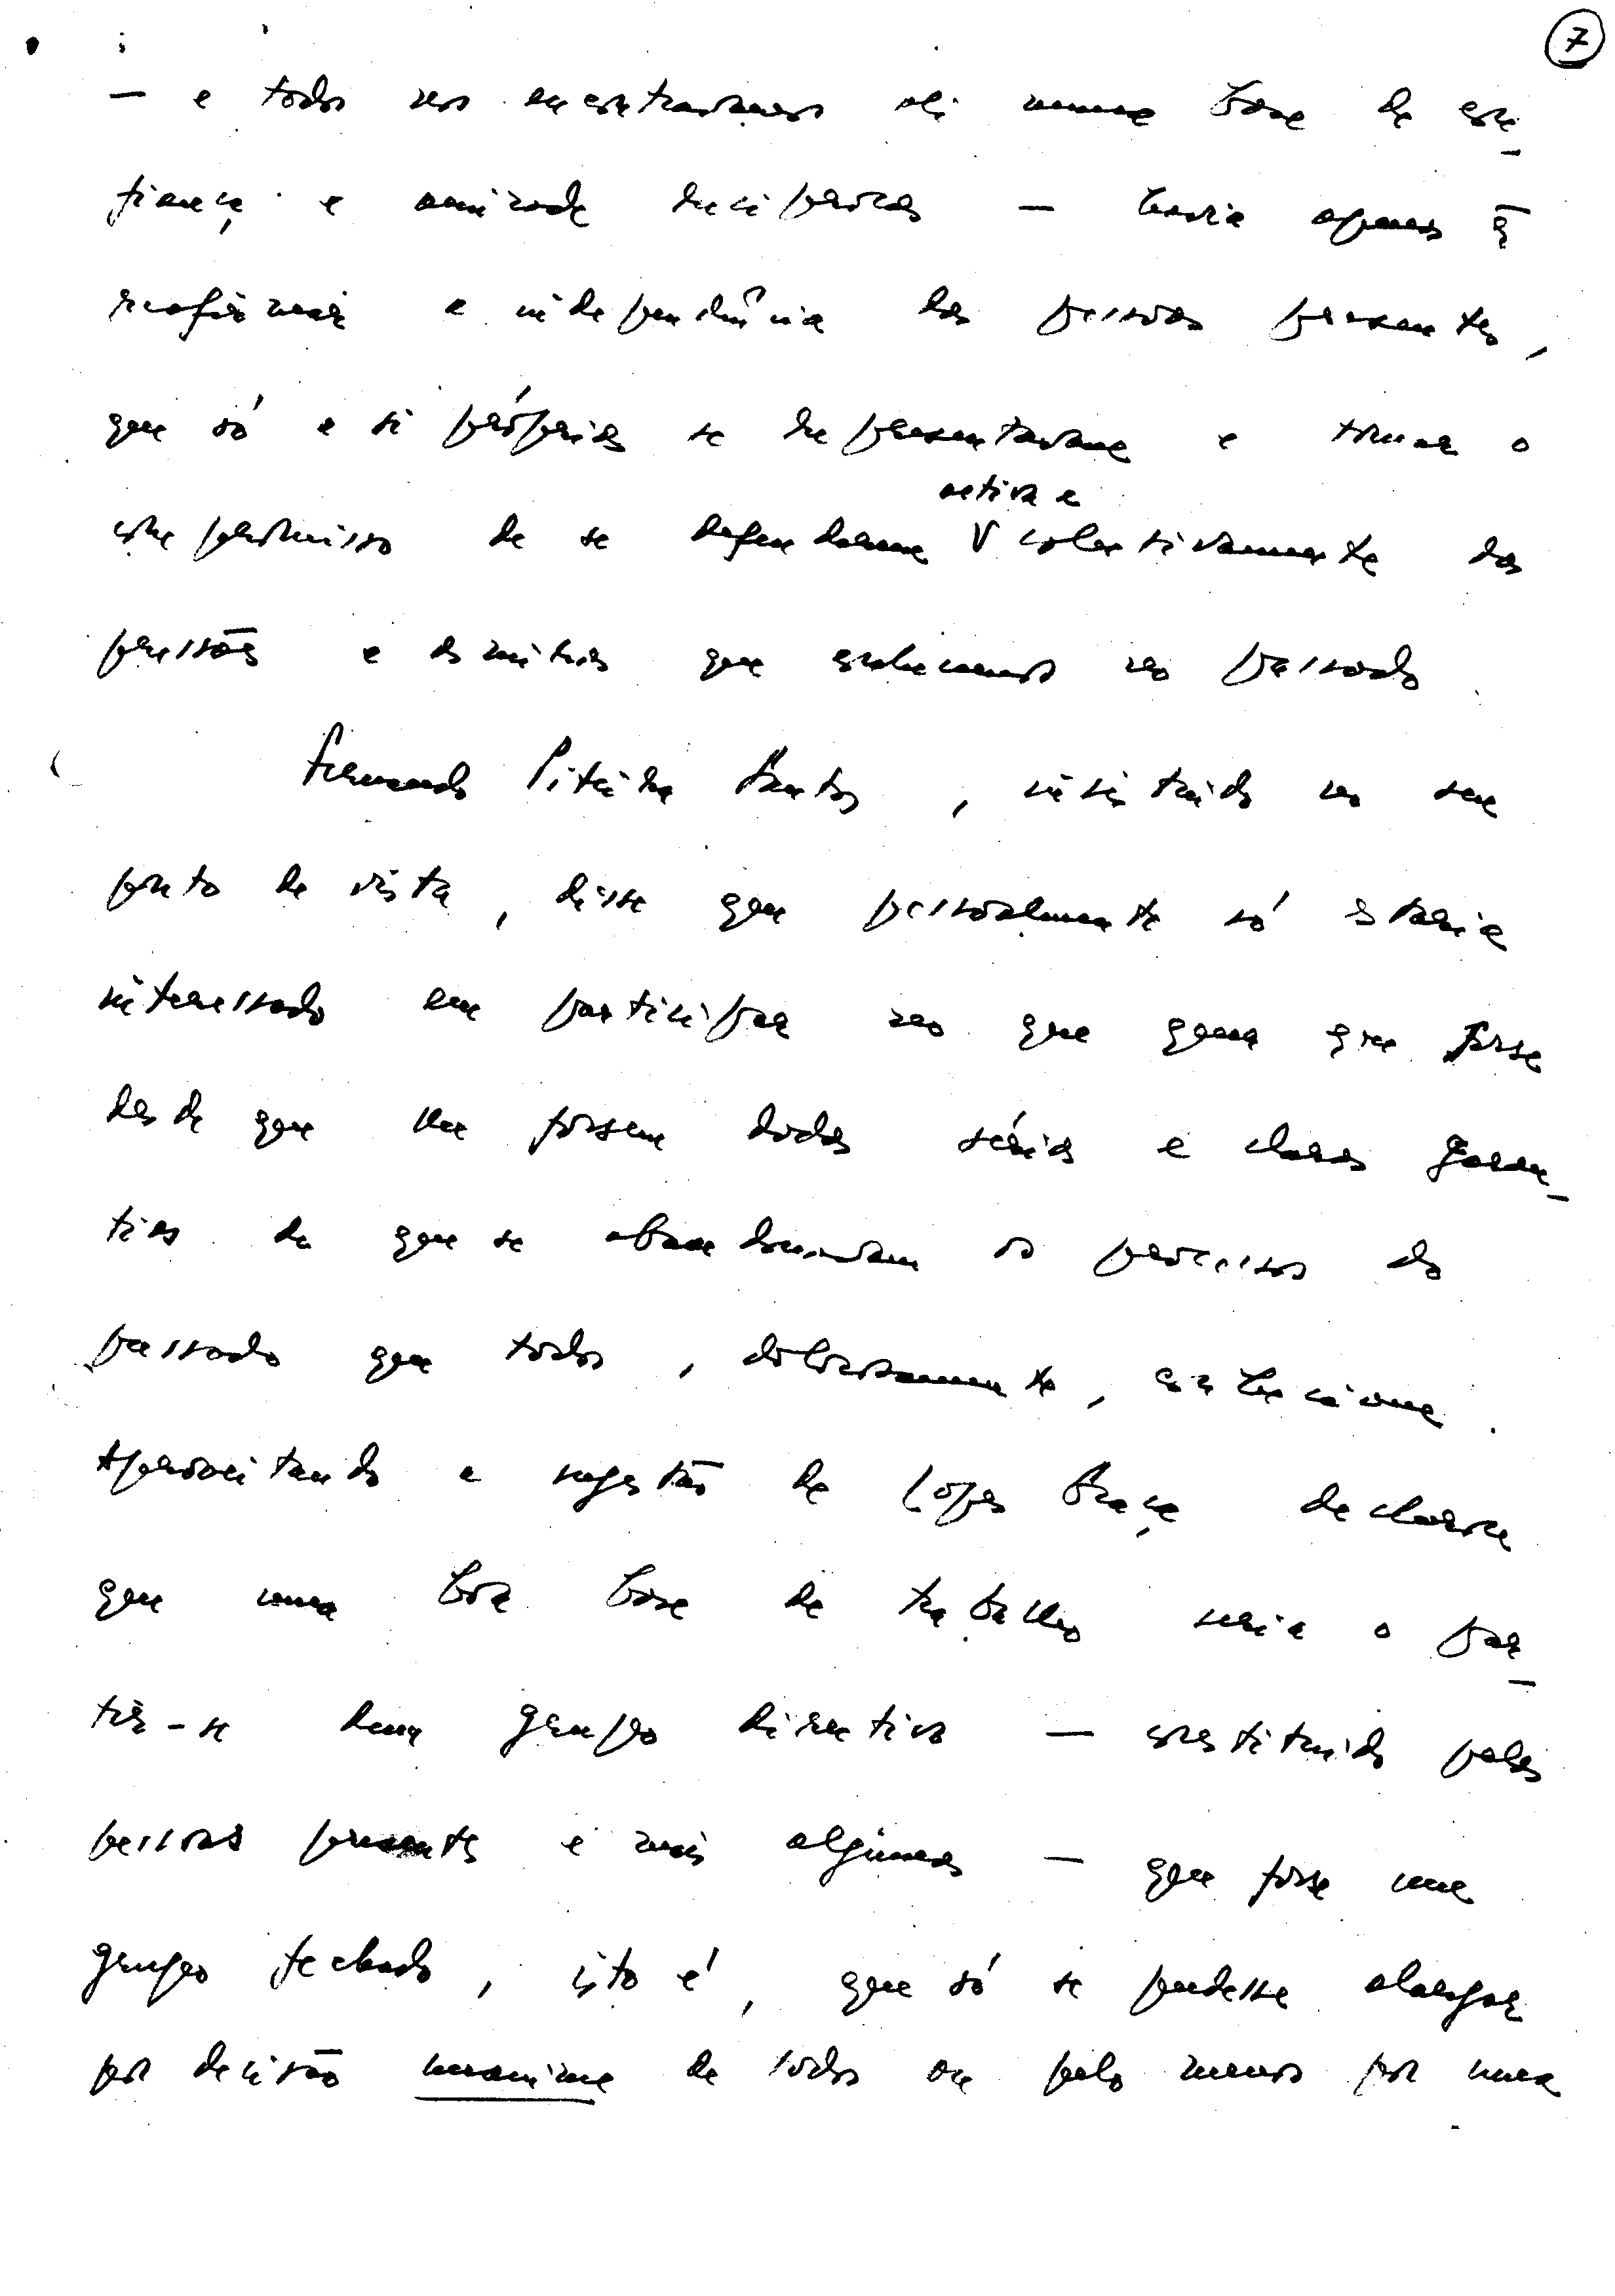 7
— e todos nos encontravamos ali numa base de con-
fiança e amizade reciprocas — havia apenas q̃
reafirmar a independência das pessoas presentes,
que só a si próprias se representavam e tomar o
compromisso de se defenderem V colectivamente das
activa e
pressões e dominios que conhecemos no passado.
Fernando Piteira Santos, insistindo no seu
ponto de vista, disse que pessoalmente só estaria
interessado em participar no que quer que fosse
desde que lhe fossem dadas sérias e claras garan-
tias de que se abandonavam os processos do
passado que todos, dolorosamente, conheciam.
Aproveitando a sugestão de Lopes Graça declarou
que uma boa base de trabalho seria o par-
tir-se dum grupo directivo — constituido pelas
pessoas presentes e mais algumas — que fosse um
grupo fechado, isto é, que só se pudesse alargar
por decisão unanime de todos ou pelo menos por uma